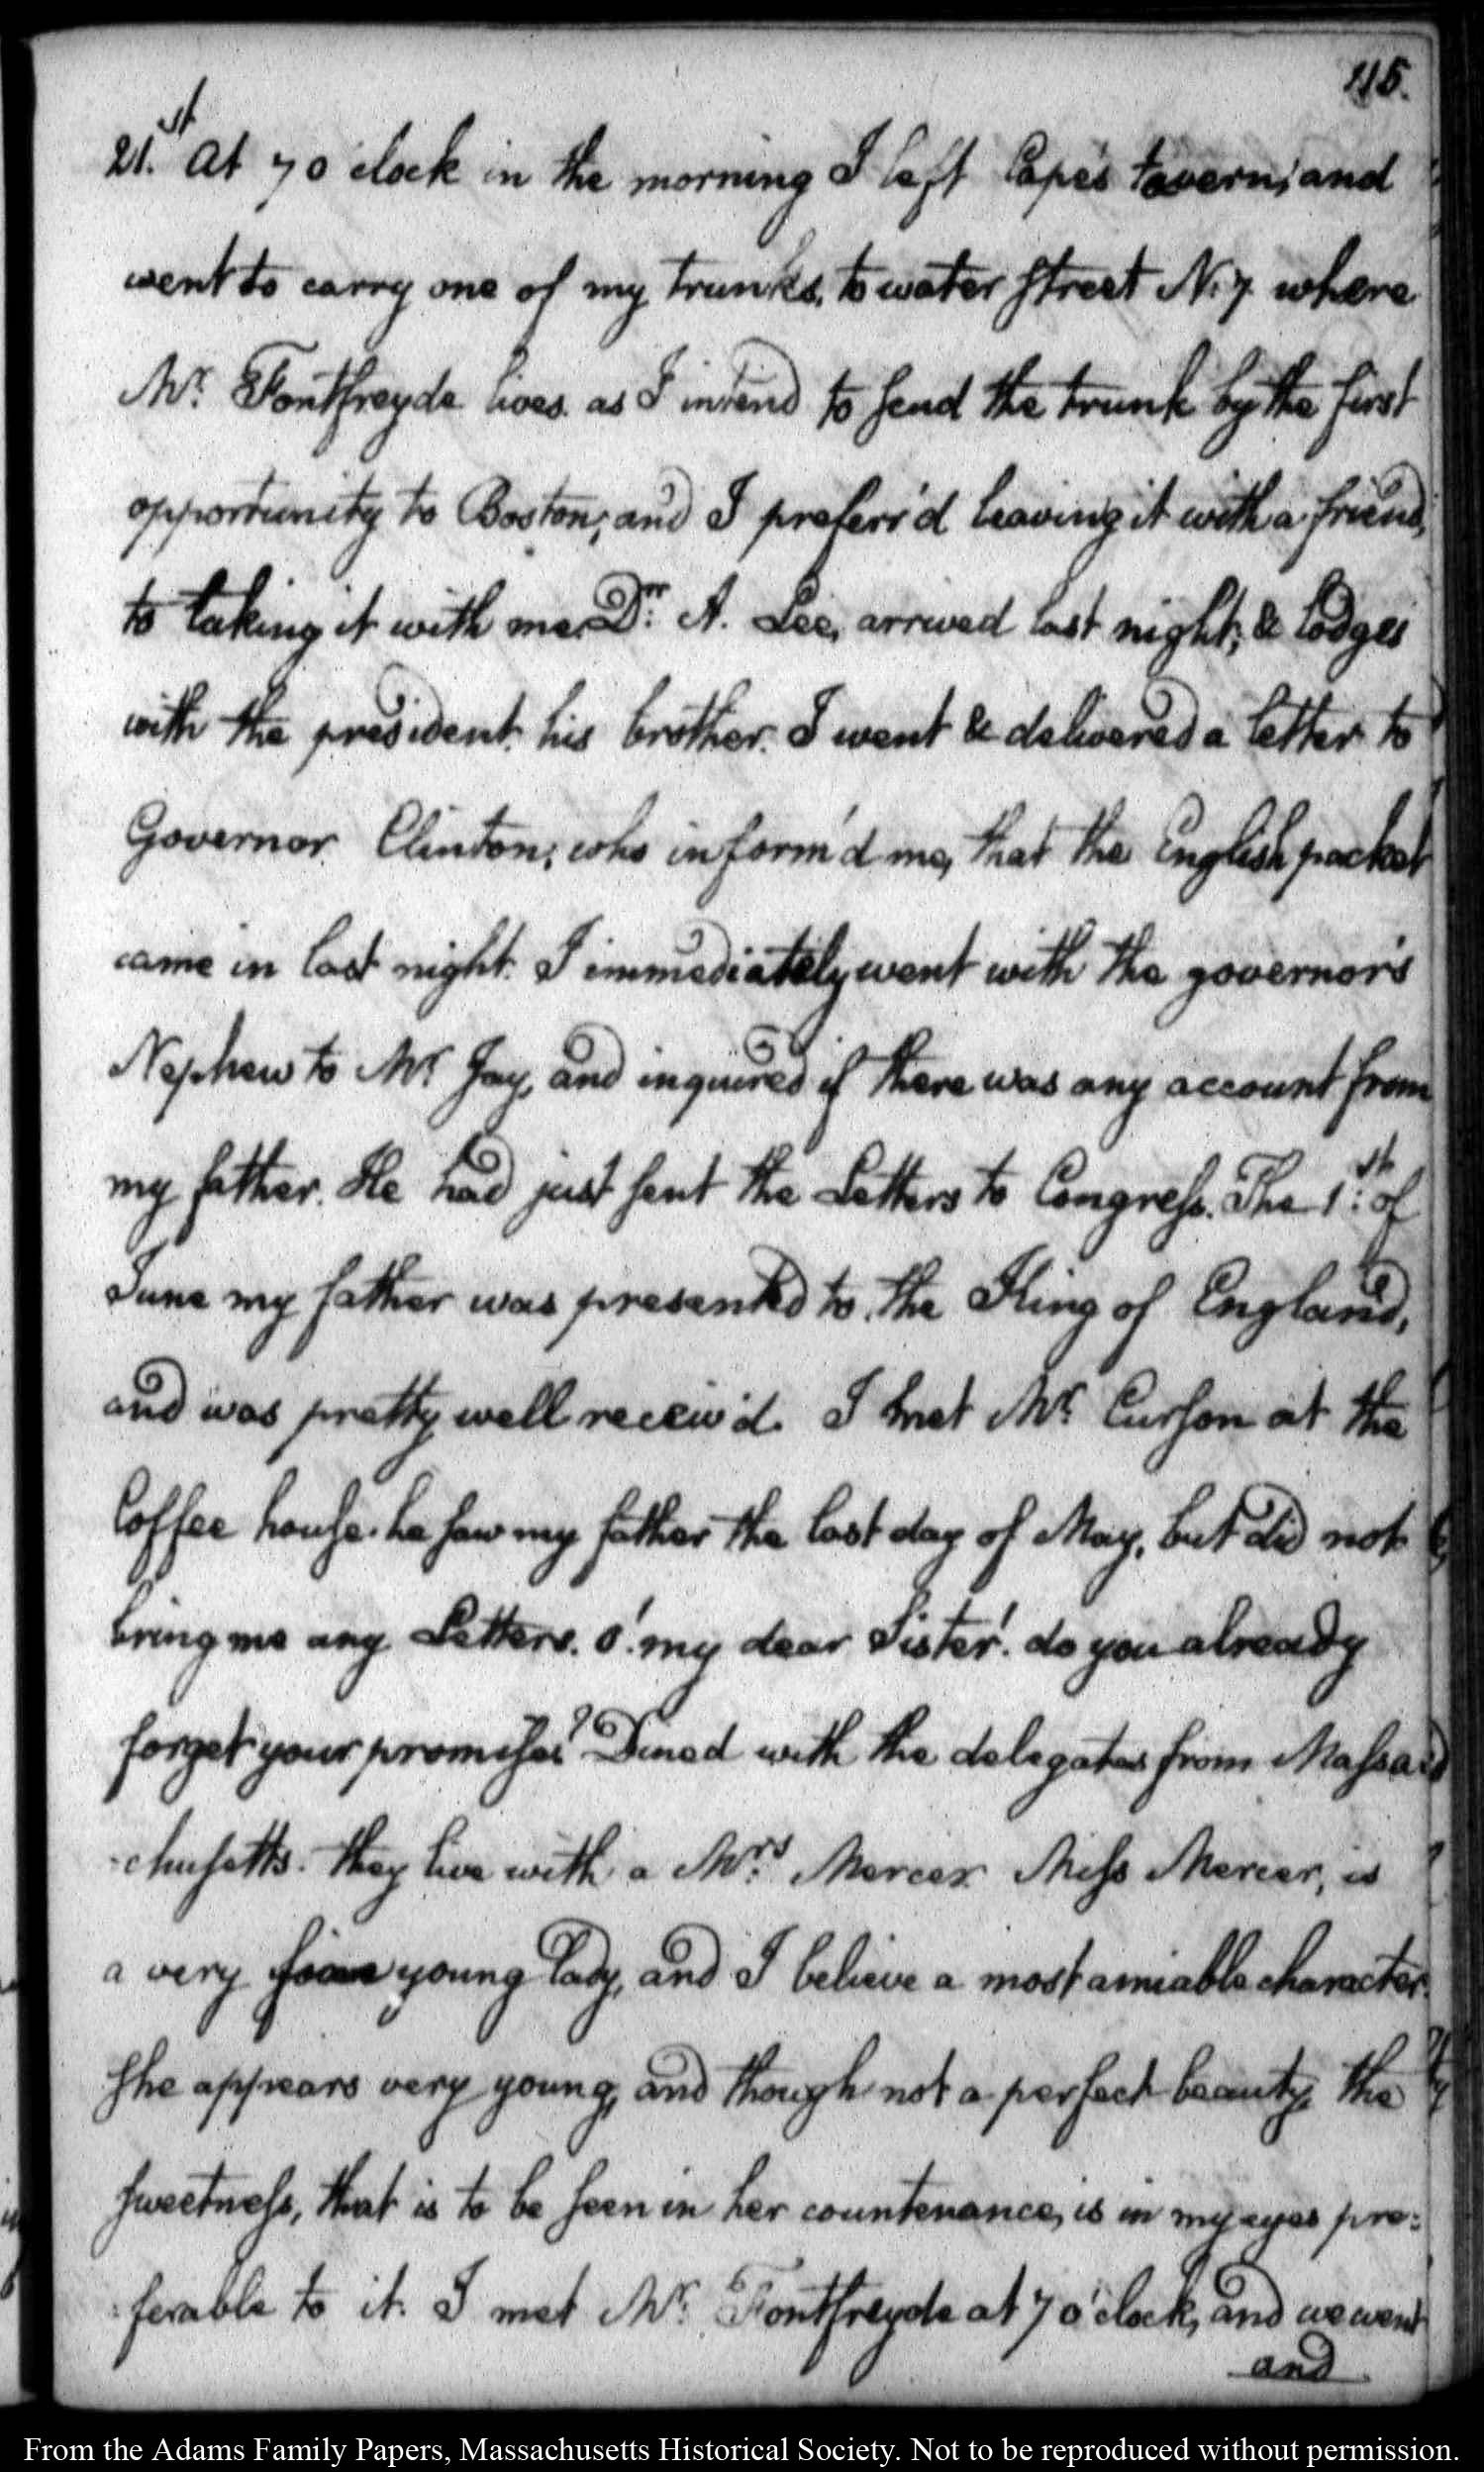 115.
21.st At 7 o'clock in the morning I left Cape's tavern, and
went to carry one of my trunks, to water street N. 7 where
Mr. Fontfreyde lives. as I intend to send the trunk by the first
opportunity to Boston, and I preferr'd leaving it with a friend,
to taking it with me. Dr. A. Lee, arrived last night, & lodges
with the president, his brother. I went & delivered a letter to
Governor Clinton; who inform'd me, that the English packet
came in last night. I immediately went with the governor's
Nephew to Mr. Jay, and inquired if there was any account from
my father. He had just sent the Letters to Congress. The 1.st of
June my father was presented to the King of England,
and was pretty well receiv'd. I met Mr. Curson at the
Coffee house. he saw my father the last day of May, but did not
bring me any Letters. o! my dear Sister! do you already
forget your promises? Dined with the delegates from Massa
-chusetts. they live with a Mrs. Mercer. Miss Mercer, is
a very young lady, and I believe a most amiable character.
She appears very young, and though not a perfect beauty, the
sweetness, that is to be seen in her countenance, is in my eyes pre=
=ferable to it. I met Mr. Fontfreyde at 7 o'clock, and we went
and
From the Adams Family Papers, Massachusetts Historical Society. Not to be reproduced without permission.